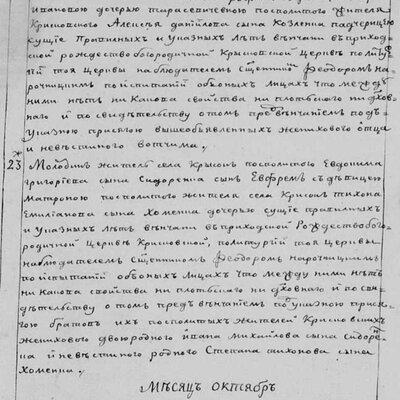 Ивановою дочерью Тарасевичевою посполитого жителя
Крисковского Алексѣя Данилова сына Козленка падчерицею
сущіе правилныхъ и указныхъ лѣтъ вѣнчани въ приход
ской рождествобогородичной Крысковской церквѣ по литур
гіи тоя церквы наблюдателемъ священникомъ Феодоромъ на
рочицкимъ по испитаніи обоихъ лицахъ что между
ними нѣтъ ни какова свойства ни плотского ни духов
наго и по свидѣтельству о томъ предъ вѣнчаніемъ подъ
указною присягою вышеобъявленныхъ женихового отца
и невѣстиного вотчима.
23 Молодикъ житель села Крысок посполитого Евдокима
Григоріева сына Сидоренка сынъ Евфремъ съ дѣвицею
Матроною посполитого жителя села Крисок Тихона
Емиліанова сына Хоменка дочерью сущіе правилныхъ
и указныхъ лѣтъ вѣнчани въ приходской Рождествобого
родичной церквѣ Крисковской, по литургіи тоя церквы
наблюдателемъ священникомъ Феодоромъ нарочицкимъ
по испытаніи обоихъ лицахъ что между ними нѣтъ
ни какова свойства ни плотского ни духовнаго и по сви
дѣтельству о томъ предъ вѣнчаніемъ по указною прися
гою братовъ ихъ посполитыхъ жителей Крисковскихъ
женихового двоюродного Ивана Михайлова сына Сидоре
нка и невѣстиного родного Стефана Тихонова сына
Хоменка.
Мѣсяцъ октябрь